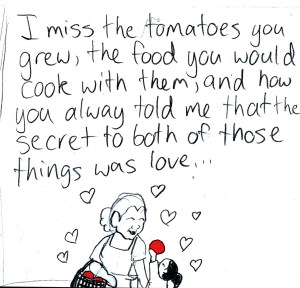 I miss the tomatoes you
grew, the food you would
cook with them, and how
you alway told me that the
secret to both of those
things was love...